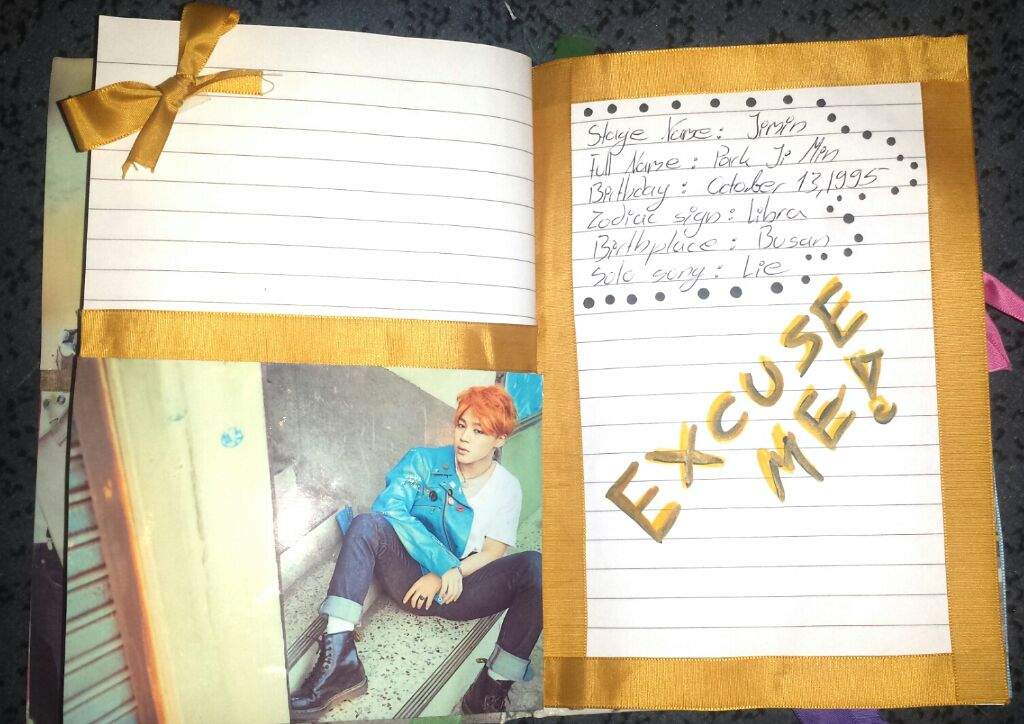 Stage Name: Jimin
Full Name: Park Ji Min
Birthday: October 13, 1995
Zodiac sign: Libra
Birthplace: Busan
Solo song: Lie
EXCUSE
ME!